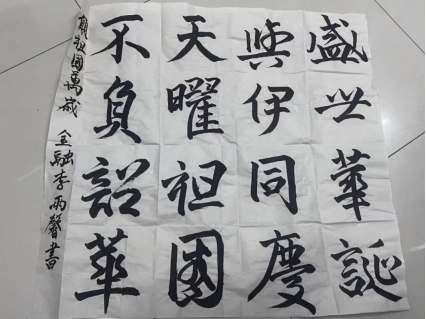 盛世華誕
與伊同慶
天曜祖國
不負韶華
願祖國萬歲 金融李雨馨書